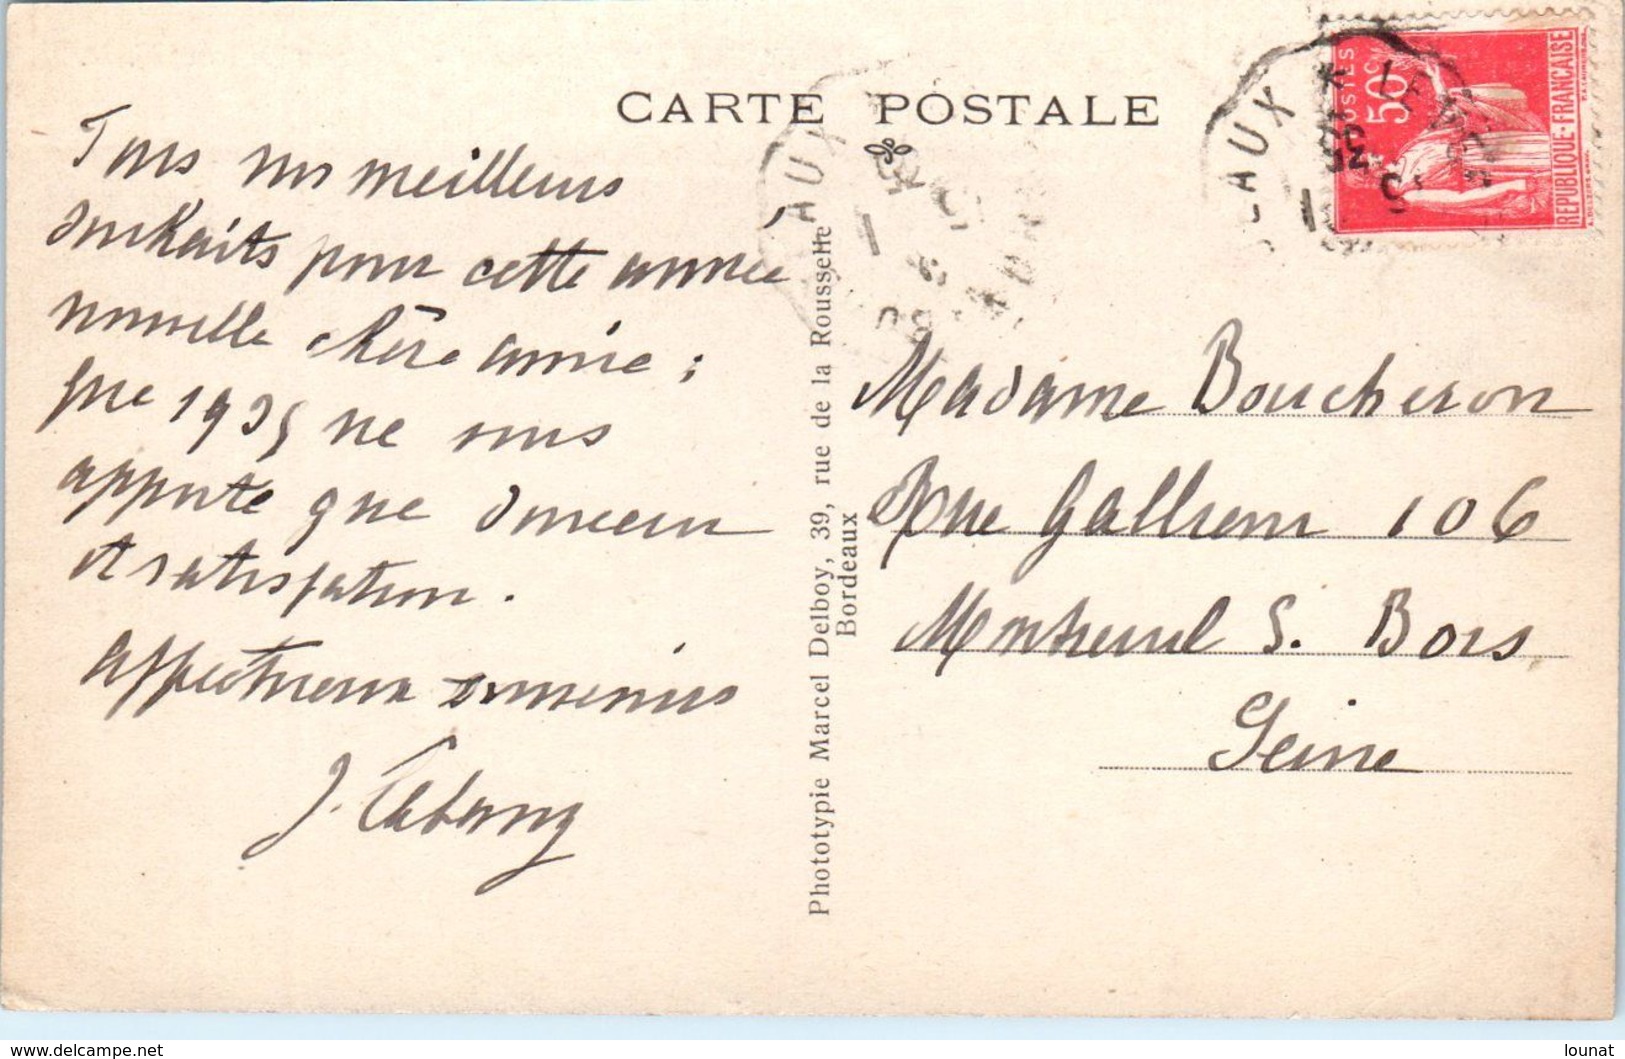 CARTE POSTALE
Tous nos meilleurs
souhaits pour cette année
nouvelle chère amie ;
que 1935 ne vous
apporte que douceur
et satisfaction.
affectueux souvenirs
J.
Phototypie Marcel Delboy, 39, rue de la Rousselle
Bordeaux
POSTES
50c
REPUBLIQUE·FRANCAISE
Madame Boucheron
Rue Gallieni 106
Montreuil S. Bois
Seine
www.delcampe.net
lounat